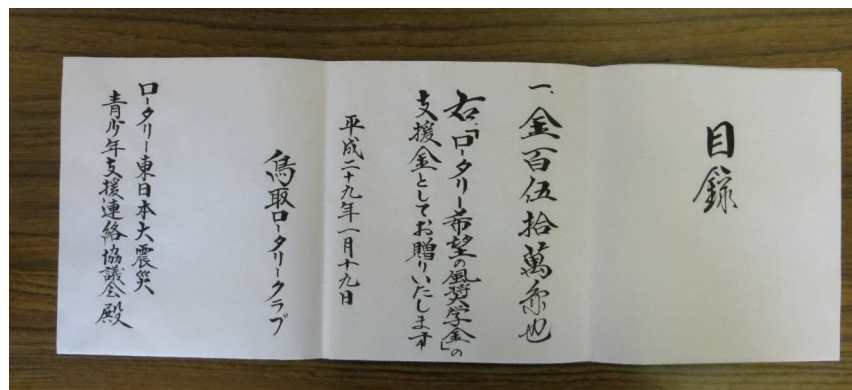 目録
一、金百伍拾萬円也
右、「ロータリー希望の風奨学金」の
支援金としてお贈りいたします
平成二十九年一月十九日
鳥取ロータリークラブ
ロータリー東日本大震災
青少年支援連絡協議会殿